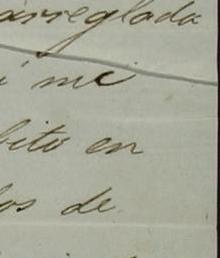 arreglada
í mi
bito en
los de